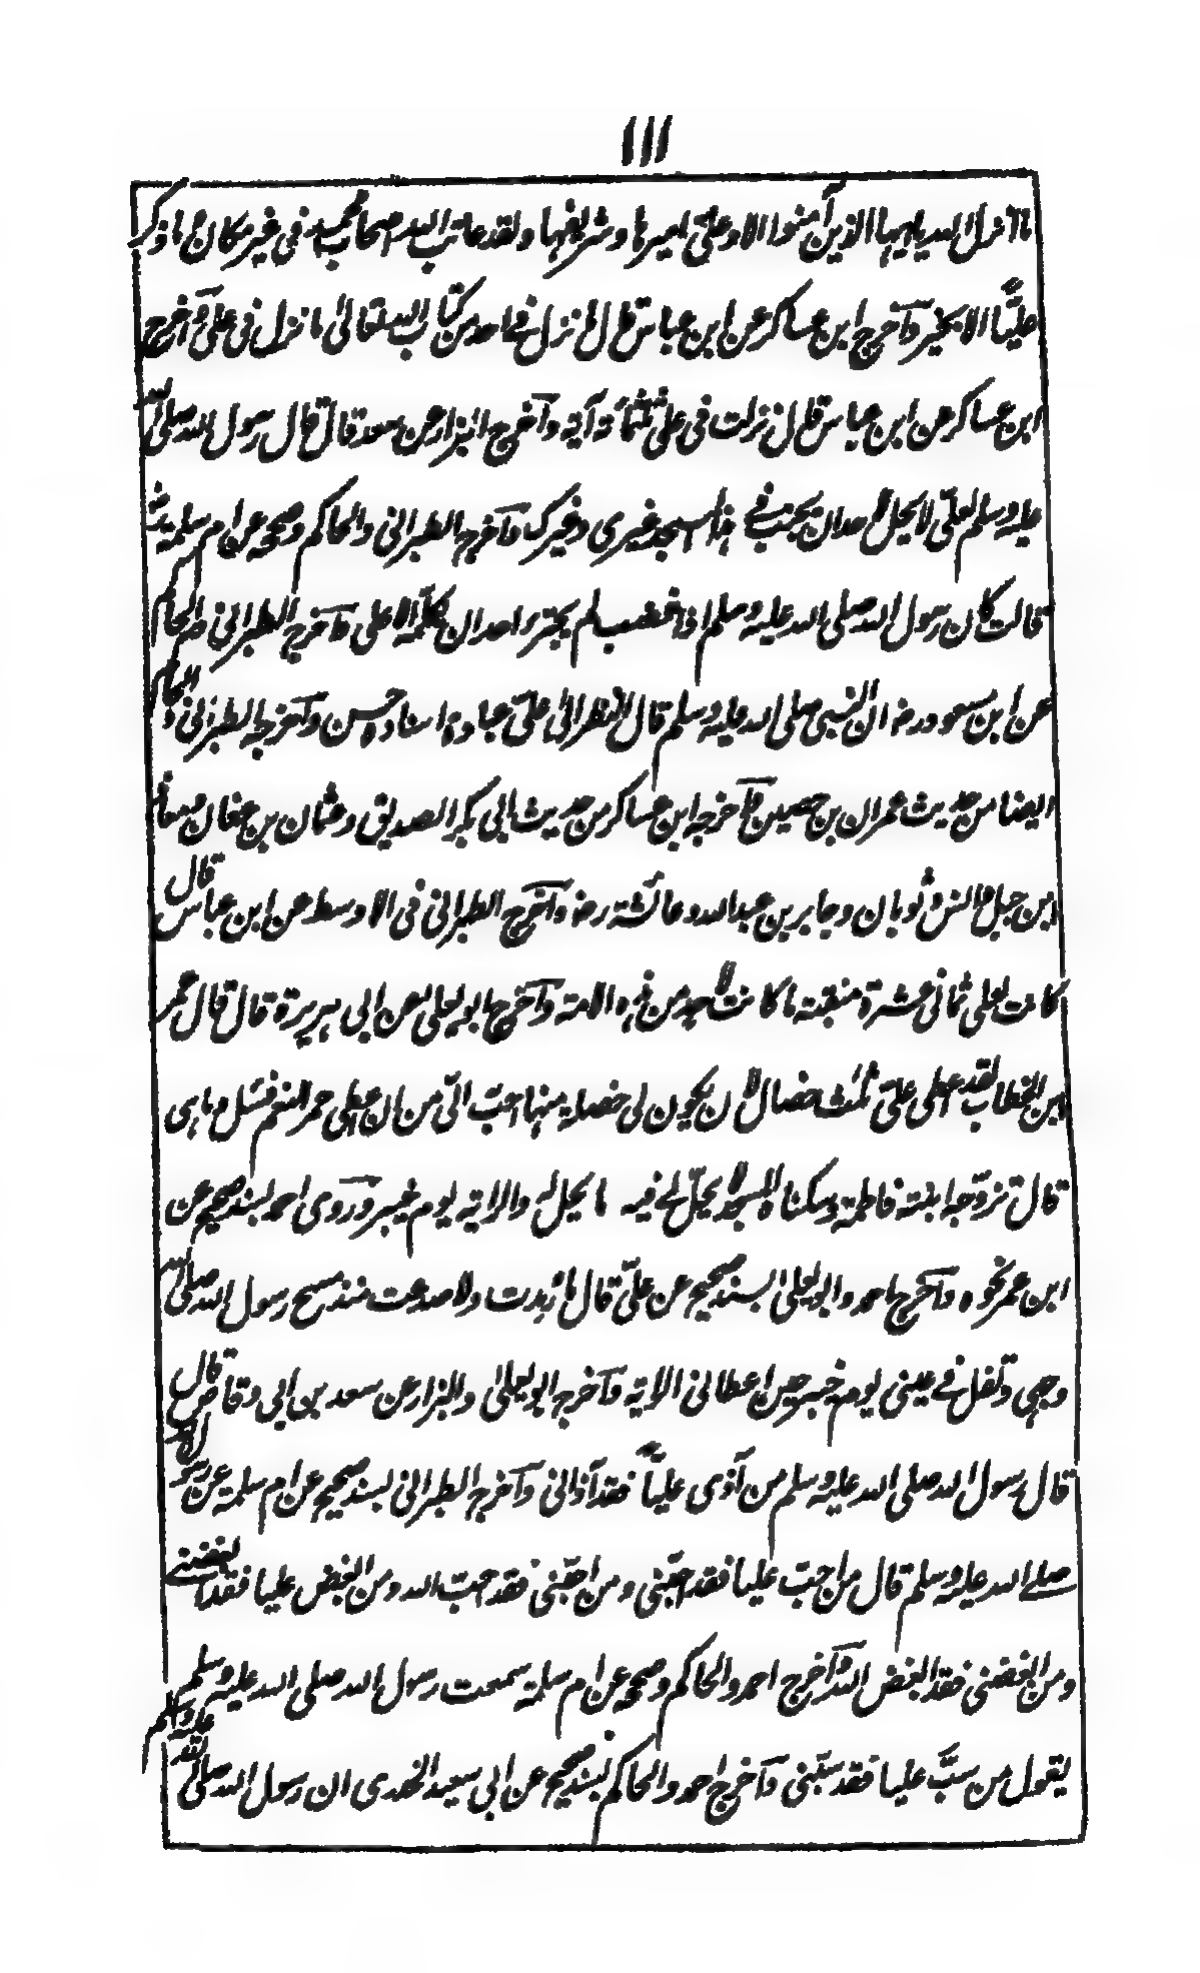 ١١١
ما انزل الله يا ايها الذين آمنوا الا وعلىّ اميرها وشريفها ولقد عاتب الله اصحاب محمد فى غير مكان وما ذكر
عليًّا الا بخير وآخرج ابن عساكر عن ابن عباس قال ما نزل فے احد من كتاب الله تعالىٰ ما نزل فى على وآخرج
ابن عساكر عن ابن عباس قال نزلت فى على ثلثمائة آية وآخرج البزار عن سعد قال قال رسول الله صلى الله
عليه وسلم لعلىّ لا يحل لاحد ان يجنب فے هذا المسجد غيرى وغيرك وآخرج الطبرانى والحاكم وصححه عن ام سلمة
قالت كان رسول الله صلى الله عليه وسلم اذا غضب لم يجترء احد ان يكلمه الا على وآخرج الطبرانى والحاكم
عن ابن مسعود رضه ان النبى صلى الله عليه وسلم قال النظر الىٰ علىّ عبادة اسناده حسن وآخرجه الطبرانى والحاكم
ايضا من حديث عمران بن حصين وآخرجه ابن عساكر من حديث ابى بكر الصديق وعثمان بن عفان ومعاذ
ابن جبل وانس وثوبان وجابر بن عبد الله وعائشة رضه وآخرج الطبرانى فى الاوسط عن ابن عباس قال
كانت لعلى ثمانى عشرة منقبته ما كانت لاحد من هذه الامة وآخرج ابو يعلى عن ابى هريرة قال قال عمر
ابن الخطاب لقد اعطى علىّ ثلث خصال لان يكون لى خصلة منها احبّ الىّ من ان اعطى حمر النعم فسئل ما هى
قال تزوّجه ابنته فاطمة وسكناه المسجد لا يحلّ لے فيه ما يحل له والراية يوم خيبر وروى احمد بسند صحيح عن
ابن عمر نحوه وآخرج احمد وابو يعلىٰ بسند صحيح عن علىّ قال ما رمدت ولا صدعت منذ مسح رسول الله صلى الله
وجهى وتفل فے عينى يوم خيبر حين اعطانى الراية وآخرج ابو يعلىٰ والبزار عن سعد بن ابى وقاص قال
قال رسول الله صلى الله عليه وسلم من آذى عليًّا فقد آذانى وآخرج الطبرانى بسند صحيح عن ام سلمة عن رسول الله
صلے الله عليه وسلم قال من احبّ عليا فقد احبّنى ومن احبّنى فقد احبّ الله ومن ابغض عليا فقد ابغضنے
ومن ابغضنى فقد ابغض الله وآخرج احمد والحاكم وصححه عن ام سلمة سمعت رسول الله صلى الله عليه وسلم
يقول من سبّ عليا فقد سبّنى وآخرج احمد والحاكم بسند صحيح عن ابى سعيد الخدرى ان رسول الله صلى الله عليه وسلم